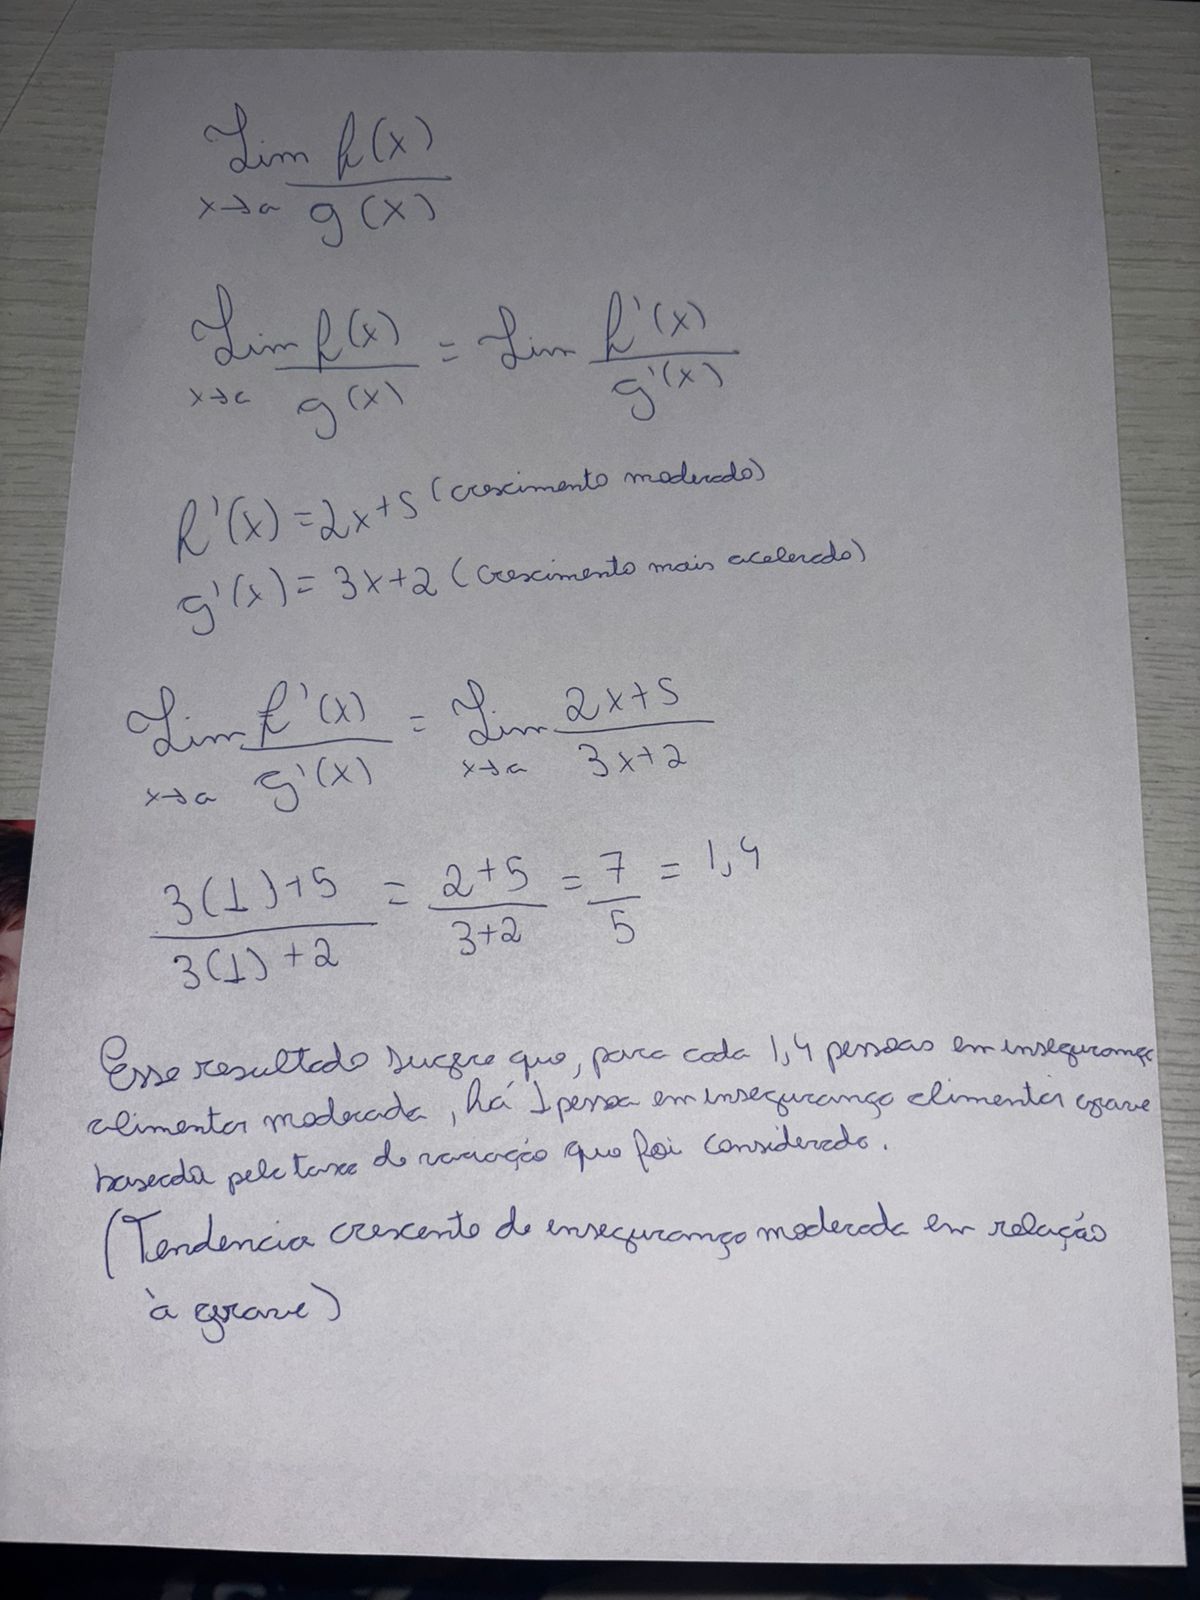 Lim f(x)
x→a g(x)
Lim f(x) = Lim f'(x)
x→a g(x) g'(x)
f'(x) = 2x+5 (crescimento moderado)
g'(x) = 3x+2 (crescimento mais acelerado)
Lim f'(x) = Lim 2x+5
x→a g'(x) x→a 3x+2
3(1)+5 = 2+5 = 7 = 1,4
3(1)+2 3+2 5
Esse resultado sugere que, para cada 1,4 pessoas em insegurança
alimentar moderada, há 1 pessoa em insegurança alimentar grave
baseada pela taxa de variação que foi considerada.
(Tendencia crescente de insegurança moderada em relação
à grave)